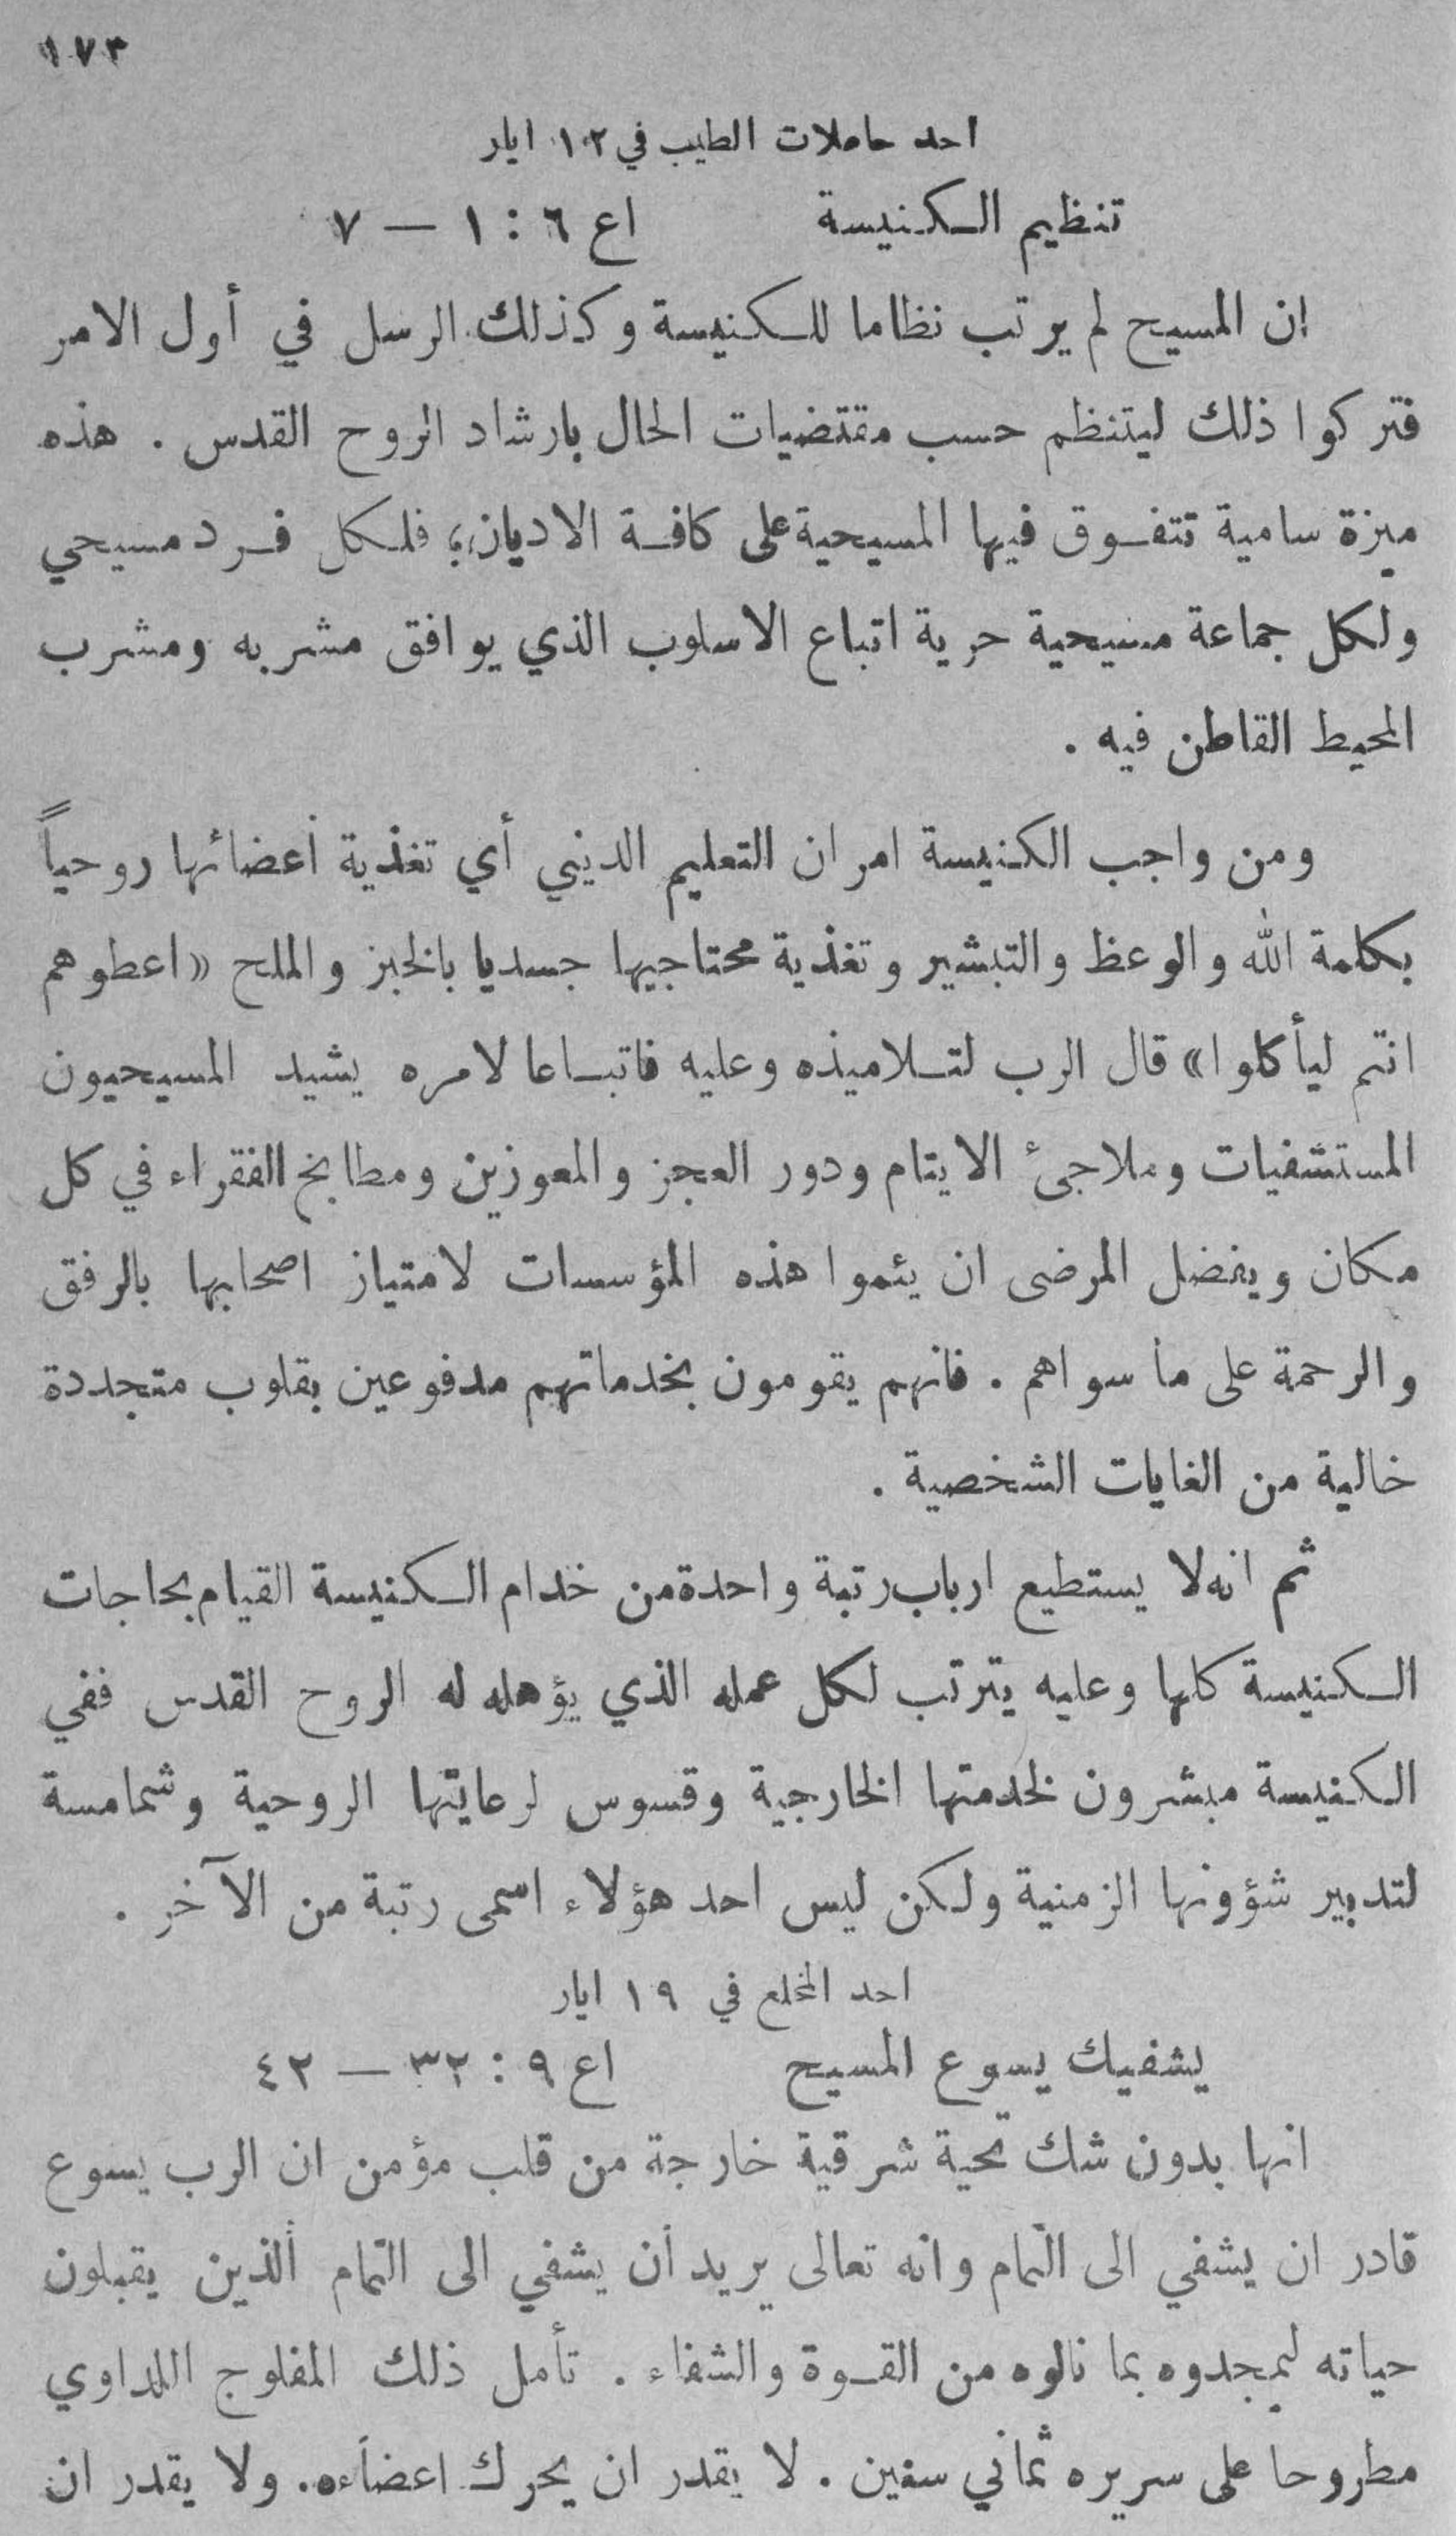 ١٧٣
احد حاملات الطيب في ١٢ ايار
تنظيم الكنيسة اع ٦ : ١ — ٧
ان المسيح لم يرتب نظاما للكنيسة وكذلك الرسل في أول الامر
فتركوا ذلك ليتنظم حسب مقتضيات الحال بارشاد الروح القدس . هذه
ميزة سامية تتفوق فيها المسيحية على كافة الاديان، فلكل فرد مسيحي
ولكل جماعة مسيحية حرية اتباع الاسلوب الذي يوافق مشربه ومشرب
المحيط القاطن فيه .
ومن واجب الكنيسة امران التعليم الديني أي تغذية أعضائها روحياً
بكلمة الله والوعظ والتبشير وتغذية محتاجيها جسديا بالخبز والملح «اعطوهم
انتم ليأكلوا» قال الرب لتلاميذه وعليه فاتباعا لامره يشيد المسيحيون
المستشفيات وملاجئ الايتام ودور العجز والمعوزين ومطابخ الفقراء في كل
مكان ويفضل المرضى ان يئموا هذه المؤسسات لامتياز اصحابها بالرفق
والرحمة على ما سواهم . فانهم يقومون بخدماتهم مدفوعين بقلوب متجددة
خالية من الغايات الشخصية .
ثم انه لا يستطيع ارباب رتبة واحدة من خدام الكنيسة القيام بحاجات
الكنيسة كلها وعليه يترتب لكل عمله الذي يؤهله له الروح القدس ففي
الكنيسة مبشرون لخدمتها الخارجية وقسوس لرعايتها الروحية وشمامسة
لتدبير شؤونها الزمنية ولكن ليس احد هؤلاء اسمى رتبة من الآخر .
احد المخلع في ١٩ ايار
يشفيك يسوع المسيح اع ٩ : ٣٢ — ٤٢
انها بدون شك تحية شرقية خارجة من قلب مؤمن ان الرب يسوع
قادر ان يشفي الى التمام وانه تعالى يريد أن يشفي الى التمام ألذين يقبلون
حياته ليمجدوه بما نالوه من القوة والشفاء . تأمل ذلك المفلوج اللداوي
مطروحا على سريره ثماني سنين . لا يقدر ان يحرك اعضاءه. ولا يقدر ان